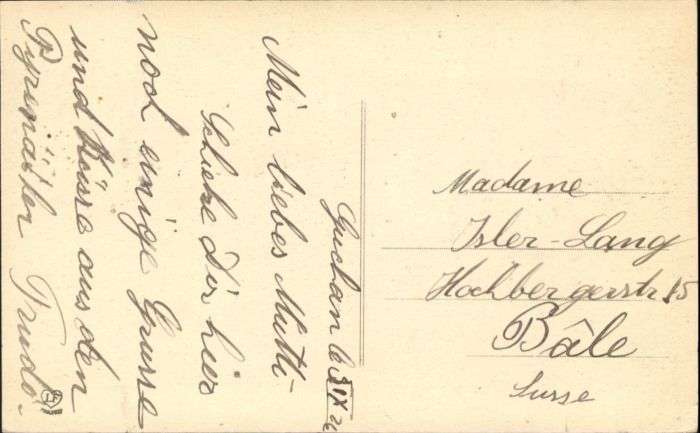 Guchan le 3 IX 26
Mein liebes Mutti
Schicke Dir hier
noch einige Grusse
und Küsse aus den
Pyrenäen
Trudo.
Madame
Isler-Lang
Hochbergerstr 15
Bâle
Suisse